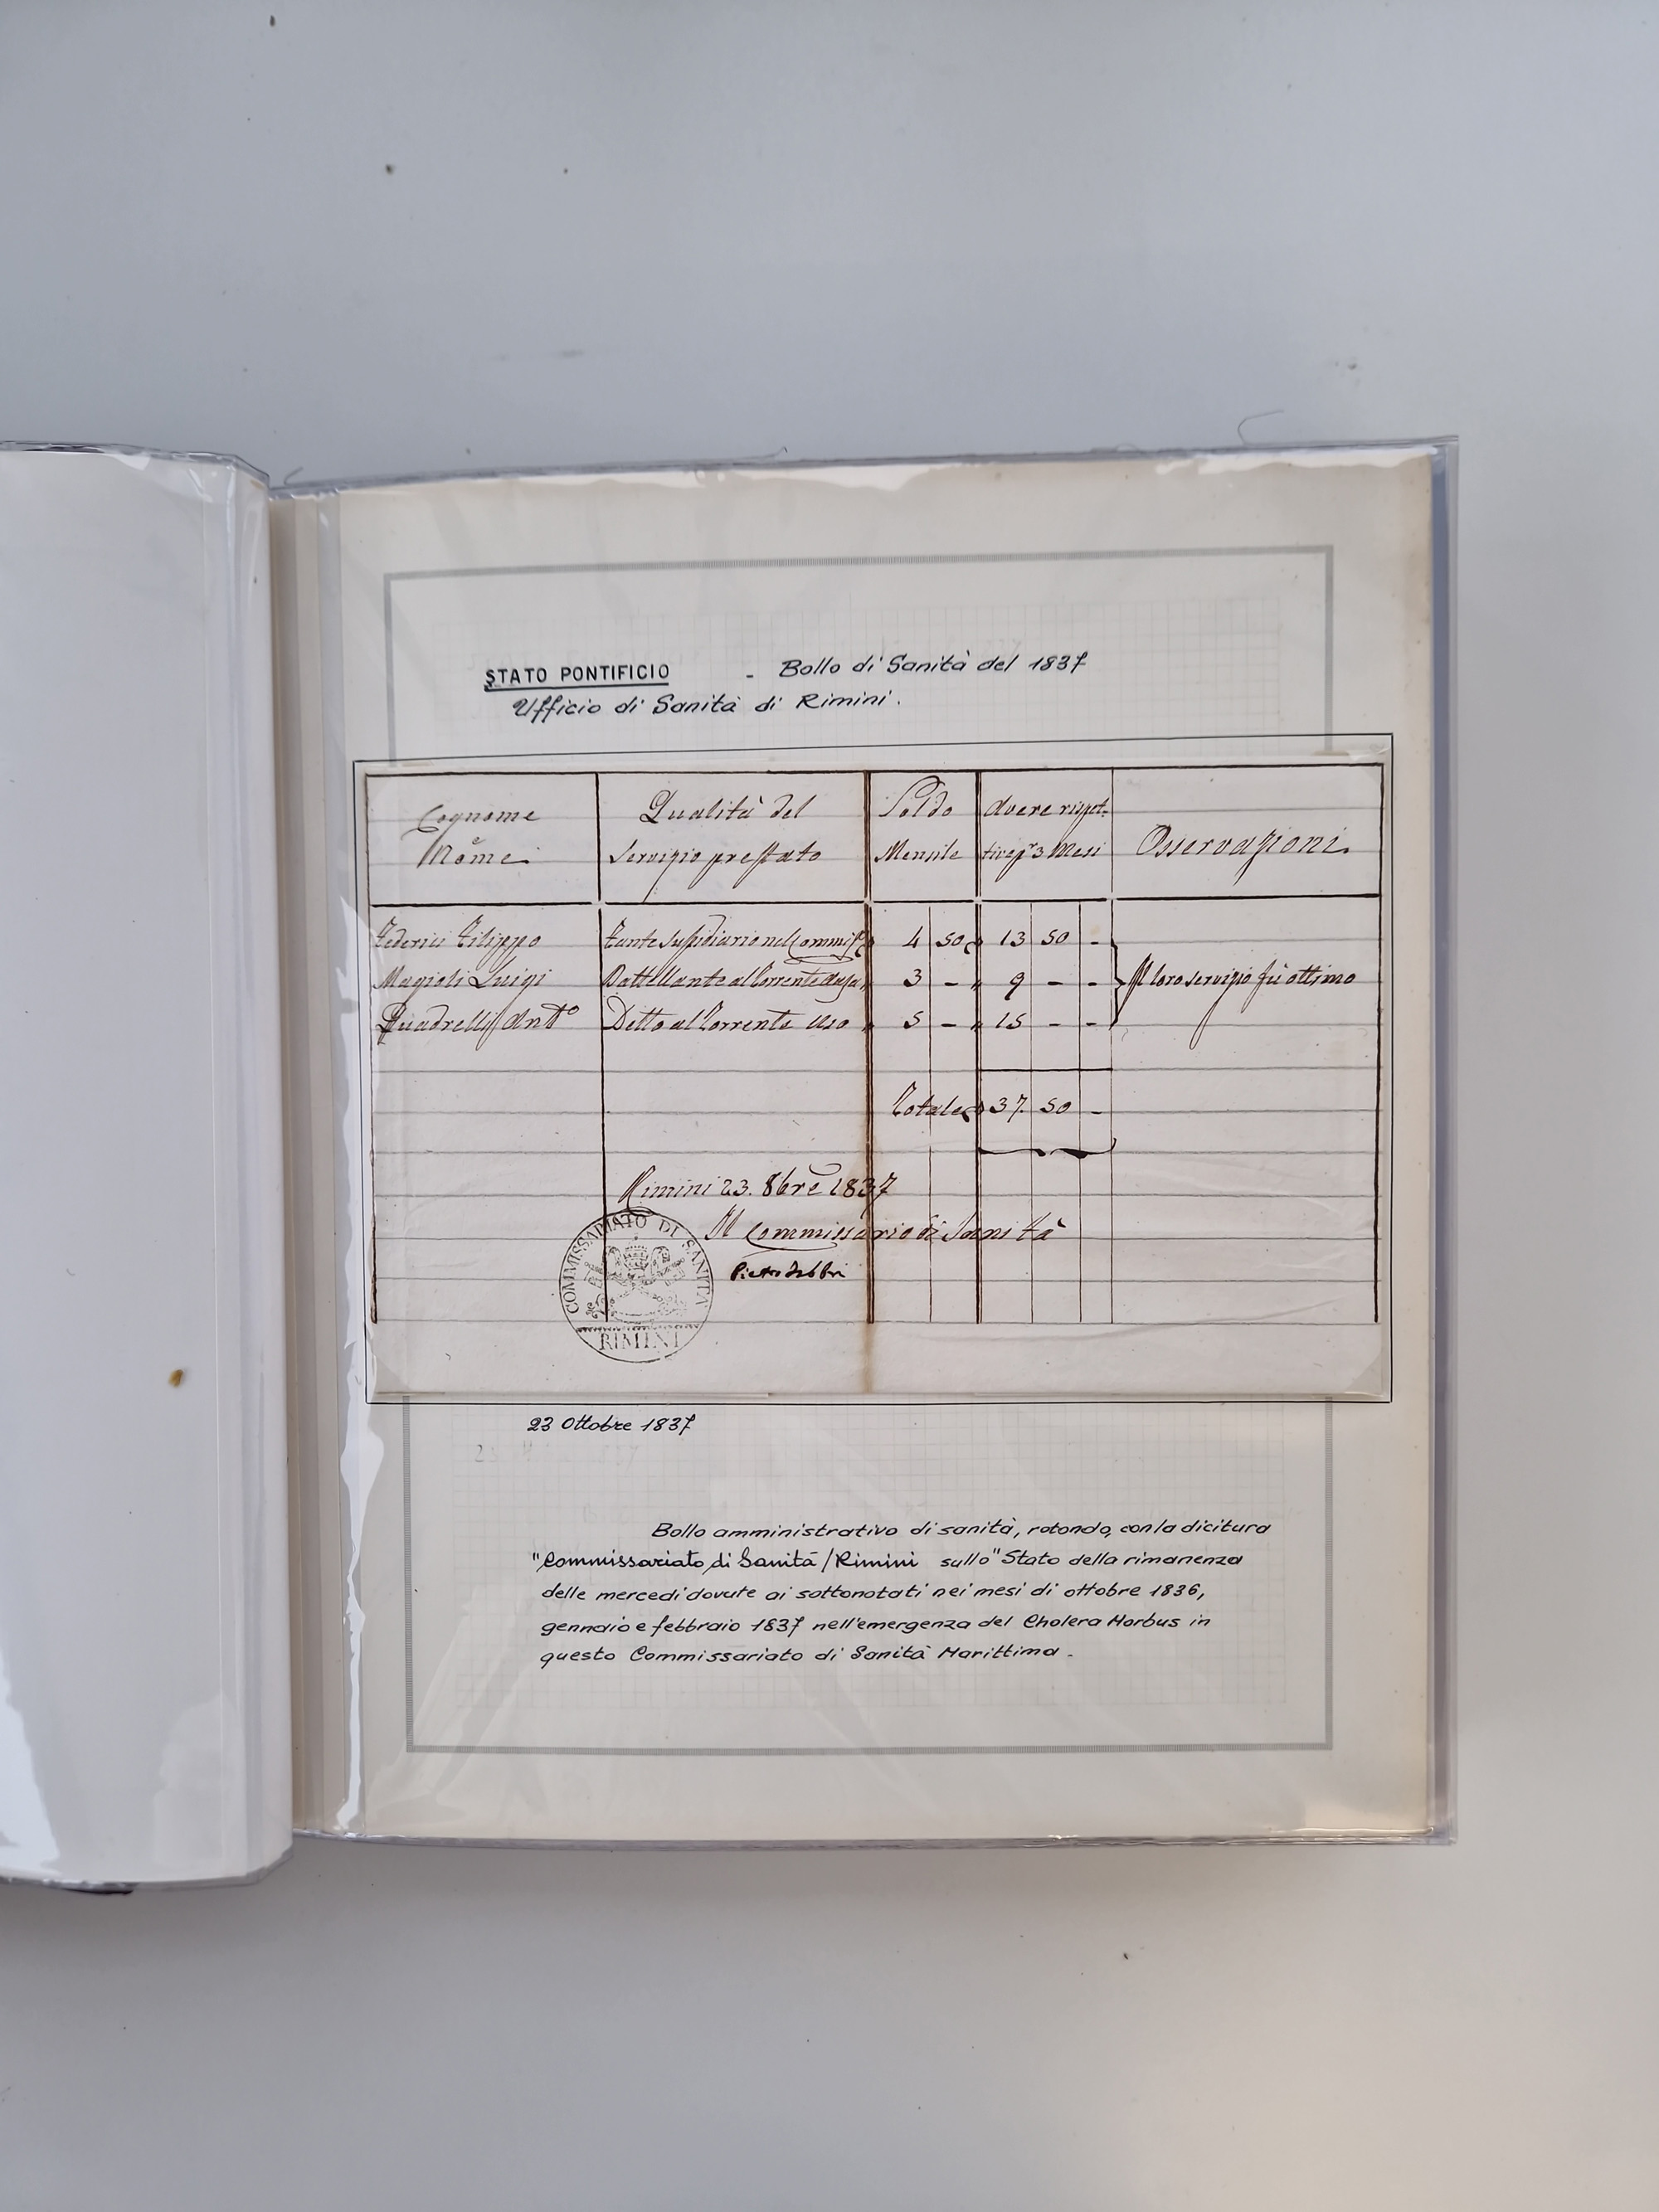 STATO PONTIFICIO - Bollo di Sanità del 1837
Ufficio di Sanità di Rimini.
Cognome e Nome
Qualità del servizio prestato
Soldo Mensile
Avere rispettivo pr 3 Mesi
Osservazioni
Federici Filippo Fante sussidiario nel 4 50 13 50 -
Magioli Luigi Battellante al Torrente 3 - 9 - -
Il loro servizio fù ottimo
Quadrelli Anto Detto al Torrente Uso 5 - 15 - -
Totale 37. 50 -
Rimini 23. 8bre 1837
Il Commissario di Sanità
Pietro Fabbri
COMMISSARIATO DI SANITA
RIMINI
23 Ottobre 1837
Bollo amministrativo di sanità, rotondo, con la dicitura
"Commissariato di Sanità / Rimini sullo "Stato della rimanenza
delle mercedi dovute ai sottonotati nei mesi di ottobre 1836,
gennaio e febbraio 1837 nell'emergenza del Cholera Morbus in
questo Commissariato di Sanità Marittima.